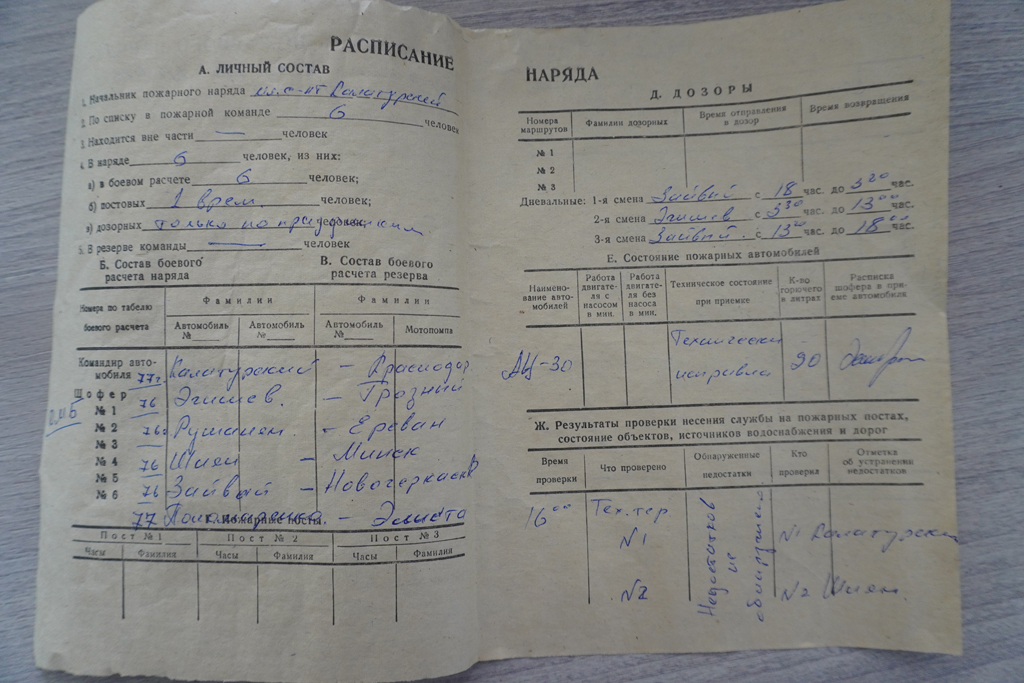 РАСПИСАНИЕ
А. ЛИЧНЫЙ СОСТАВ
1. Начальник пожарного наряда мл. с-нт Калатурский
2. По списку в пожарной команде 6 человек
3. Находится вне части — человек
4. В наряде 6 человек, из них:
а) в боевом расчете 6 человек;
б) постовых 2 врем человек;
в) дозорных только по праздникам человек;
5. В резерве команды — человек
Б. Состав боевого расчета наряда
В. Состав боевого расчета резерва
Номера по табелю боевого расчета
Фамилии
Фамилии
Автомобиль №
Автомобиль №
Автомобиль №
Мотопомпа
Командир автомобиля 77г. Калатурский — Краснодар
Шофер 76 Эгишев. — Грозный
№ 1
№ 2 76г. — Ереван
№ 3
№ 4 76 Шиян — Минск
№ 5
№ 6 76 Зайвый — Новочеркасск
77 — Элиста
Г. Пожарные посты.
Пост №1 Пост №2 Пост №3
Часы Фамилия Часы Фамилия Часы Фамилия
НАРЯДА
Д. ДОЗОРЫ
Номера маршрутов
Фамилии дозорных
Время отправления в дозор
Время возвращения
№ 1
№ 2
№ 3
Дневальные: 1-я смена Зайвый с 18 час. до 3 30 час.
2-я смена Эгишев с 3 30 час. до 13 00 час.
3-я смена Зайвый. с 13 00 час. до 18 00 час.
Е. Состояние пожарных автомобилей
Наименование автомобилей
Работа двигателя с насосом в мин.
Работа двигателя без насоса в мин.
Техническое состояние при приемке
К-во горючего в литрах
Расписка шофера в приеме автомобиля
АЦ-30 Технически исправна 90
Ж. Результаты проверки несения службы на пожарных постах,
состояние объектов, источников водоснабжения и дорог
Время проверки
Что проверено
Обнаруженные недостатки
Кто проверил
Отметка об устранении недостатков
16 00 Тех.тер
N1 N1 Калатурский
N2 N2 Шиян.
Недостатков не обнаружено